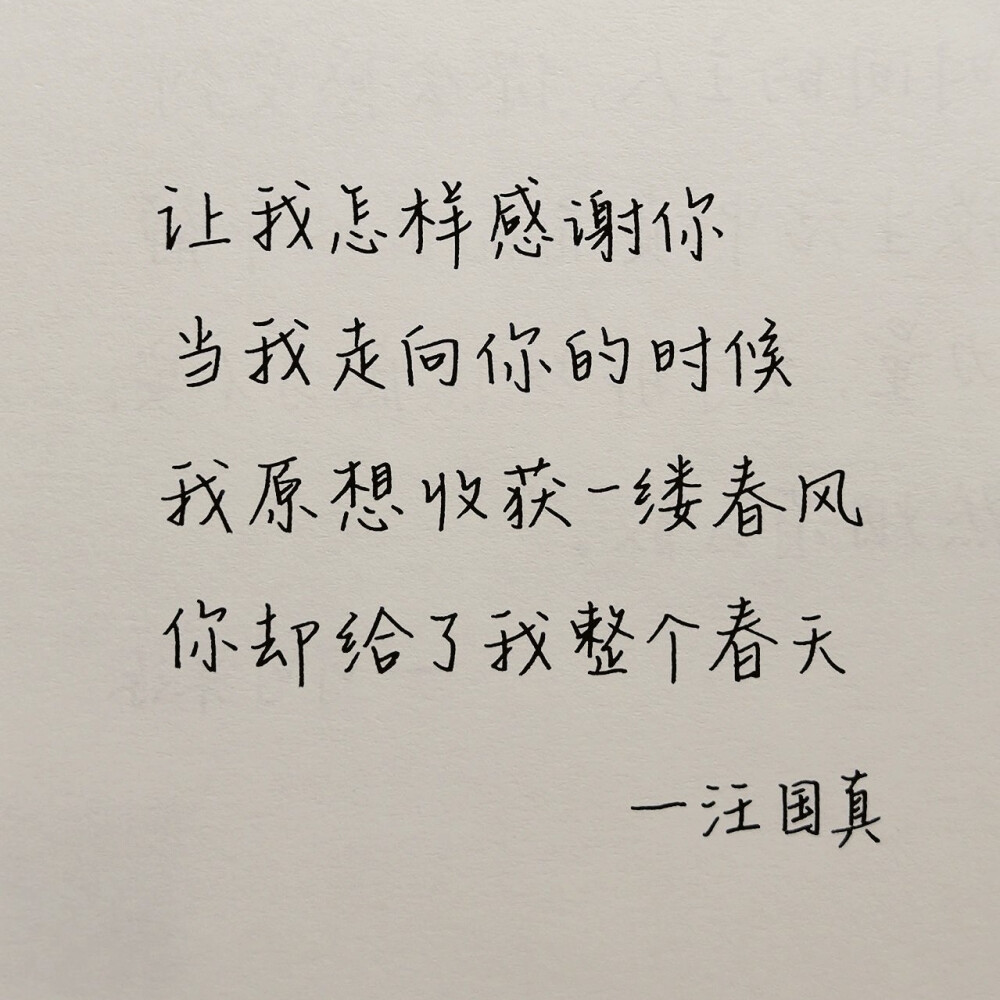 让我怎样感谢你
当我走向你的时候
我原想收获一缕春风
你却给了我整个春天
—汪国真